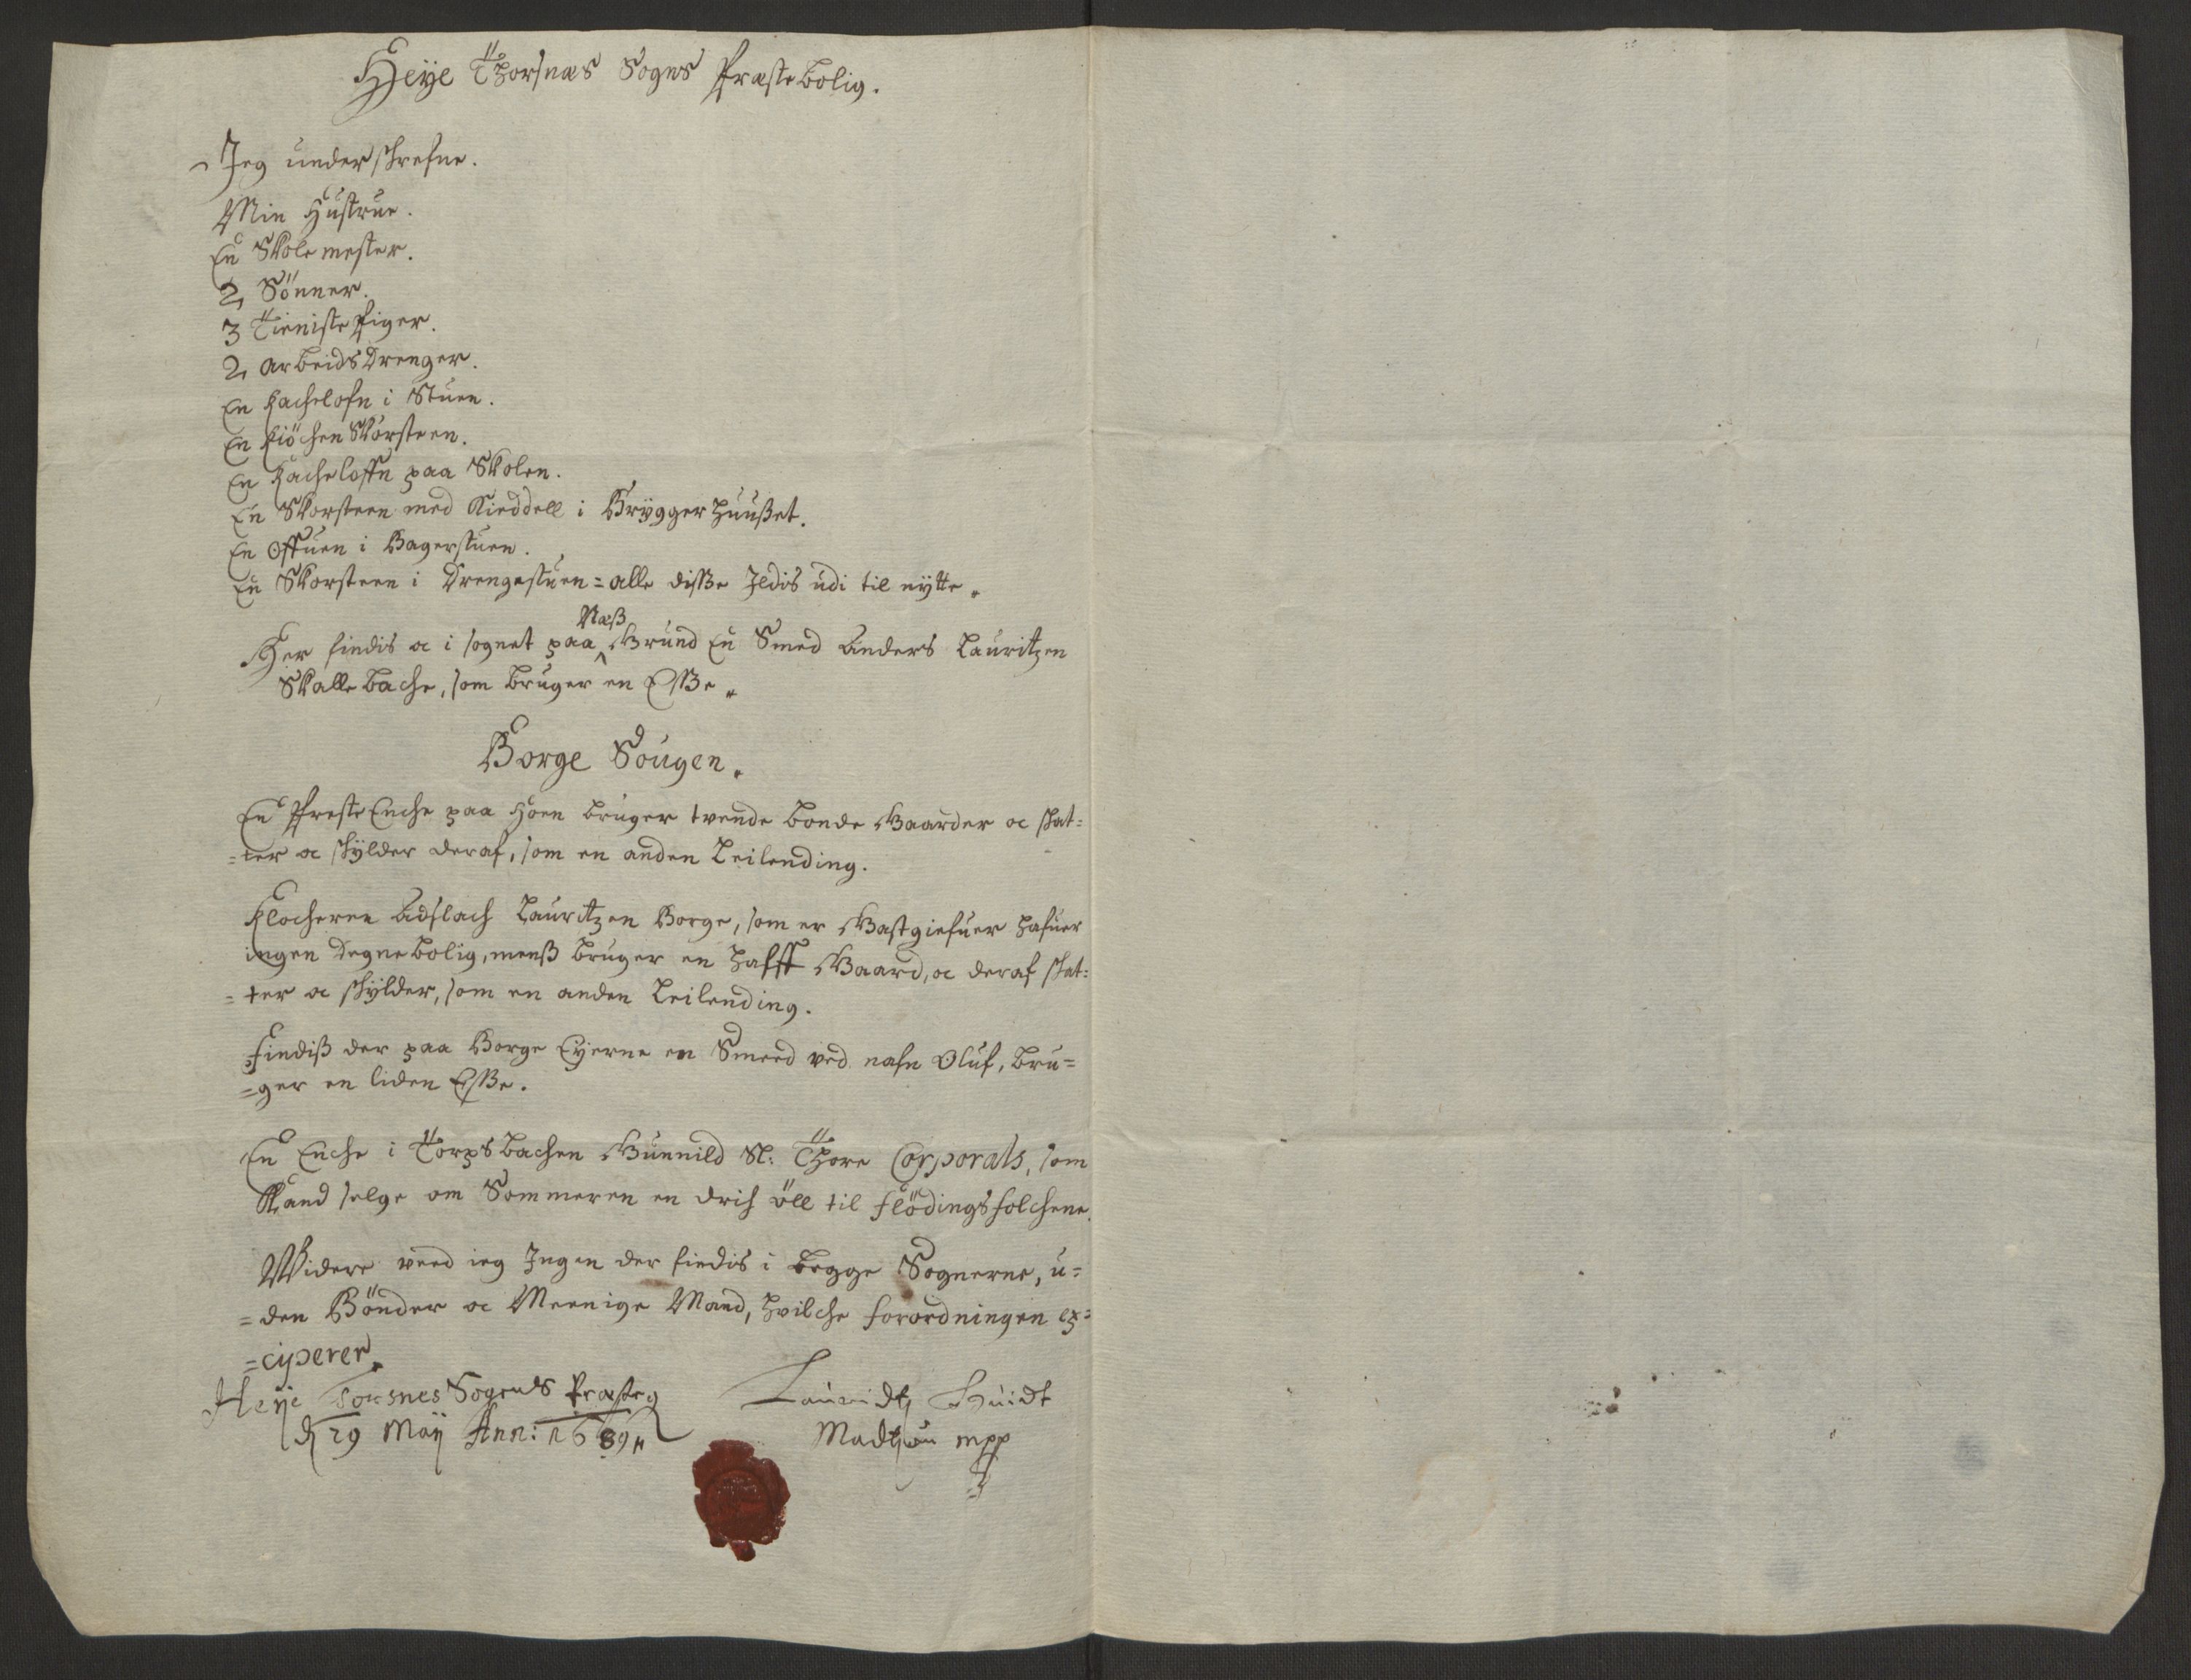 Heÿe Thorsnæs Sogns Præstebolig.
Jeg underschrefne.
Min Hustrue.
En Skolemester.
2 Sönner.
3 Tieniste Piger.
2 arbeids Drenger.
En Kachelofn i Stuen.
En Kiöchen Skorsteen.
En Kacheloffn paa Skolen.
En Skorsteen med Kieddell i Brÿggerhuuset.
En Offuen i Bagerstuen.
En Skorsteen i Drengestuen = alle disse Ildis udi til nÿtte.
Næss
Her findis oc i sognet paa Grund En Smed Anders Lauritzen
Skallebache, som bruger en Esse.
Borge Sougen.
En Preste Enche paa Hoen bruger tvende bonde Gaarder oc skat=
=ter oc skÿlder deraf, som en anden Leilending.
Klocheren Adslach Lauritzen Borge, som er Gastgiefuer hafuer
ingen Degnebolig, mens bruger en halff Gaard, oc deraf skat=
=ter oc skÿlder, som en anden Leilending.
Findiss der paa Borge Eÿerne en Smeed ved nafn Oluf, bru=
=ger en liden Esse.
En Enche i Torpsbachen Gunnild Sl: Thore Corporals, som
skand selge om Sommeren en drik öll til flödingsfolchene.
Widere veed ieg Ingen der findis i begge Sognerne, u=
=den Bönder oc Meenige Mand, hvilche forordningen ex=
=ciperer.
Heÿe Torsnes Sogends Præsteg
d 29 Maÿ Ann: 1689
Lauridtz Huidt
Madtzøn mpp